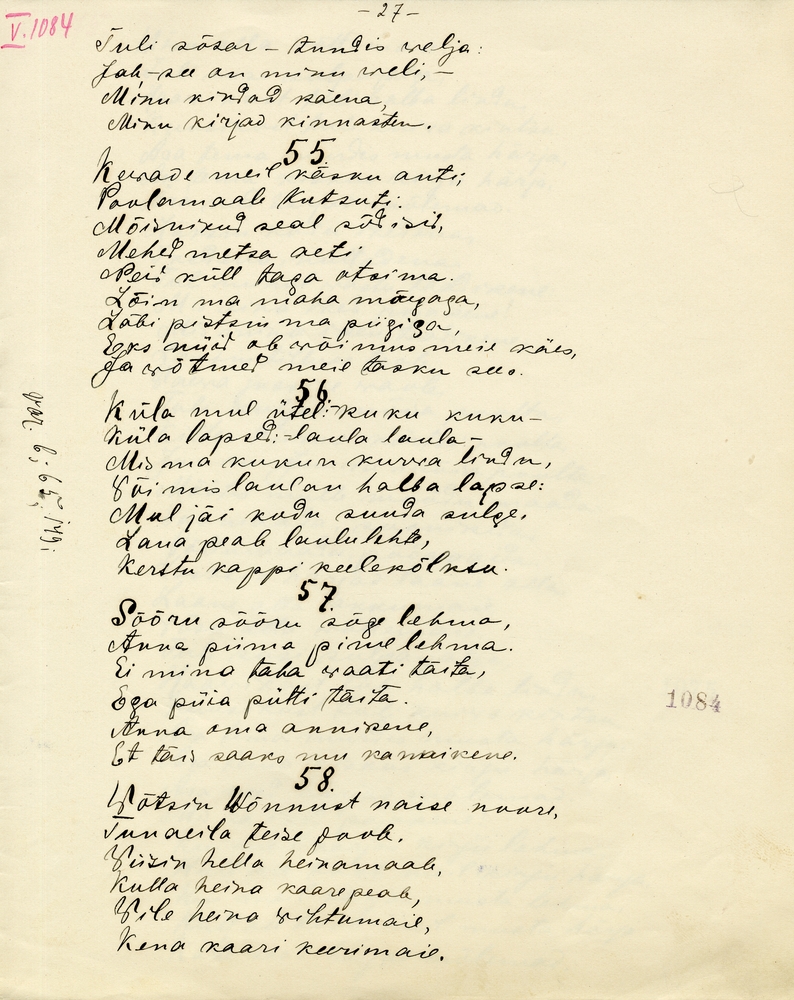 - 27 -
V. 1084
Tuli sõsar - tundis welja:
Jah, - see on minu weli, -
Minu kindad käena,
Minu kirjad kinnasten.
55.
Kewade meil käsku anti;
Poolamaale kutsuti.
Mõisnikud seal sõisid,
Mehed metsa aeti
Neid küll taga otsima.
Lõin ma maha mõõgaga,
Läbi pistsin ma piigiga,
Eeks nüid ole wõimus meie käes,
Ja wõtmed meie tasku sees.
56.
Küla mul ütel: - kuku kuku -
Küla lapsed: - laula laula -
Mis ma kukun kurwa lindu,
Või mis laulan halba lapse:
Mul jäi kodu suuda sulge,
Laua peale laululehte,
Kerstu kappi keelekõlksu.
var. 6; 65; 149;
57.
Sõõru sõõru sõge lehma,
Anna piima pime lehma.
Ei mina taha waati täita,
Ega püia pütti täita.
Anna oma annikene,
Et täis saaks mu kannikene.
1084
58.
Wõtsin Wõnnust naise noore,
Tunaeila teise poole.
Viisin hella heinamaale,
Kulla heina kaare peale,
Vile heina wihtumaie,
Kena kaari keerimaie.